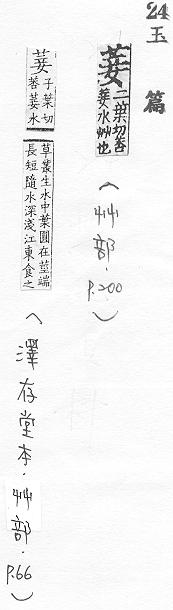 24
玉篇
菨 子葉切荅菨水艸也
(艸部.p.200)
菨 子葉切荅菨水草叢生水中葉圓在莖端長短隨水深淺江東食之
(澤存堂本.艸部.p.66)